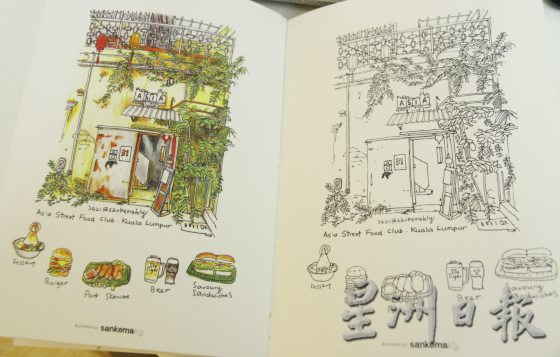 ASIA
2021@sankemakly
Asia Street Food Club. Kuala Lumpur
Dessert
Burger
Pork Skewers
Beer
Savoury
Sandwiches
illustration by sankema
ASIA
2021@sankemakly
Asia Street Food Club. Kuala Lumpur
Dessert
Beer
Savoury
Sandwiches
illustration by sankema
星洲日报